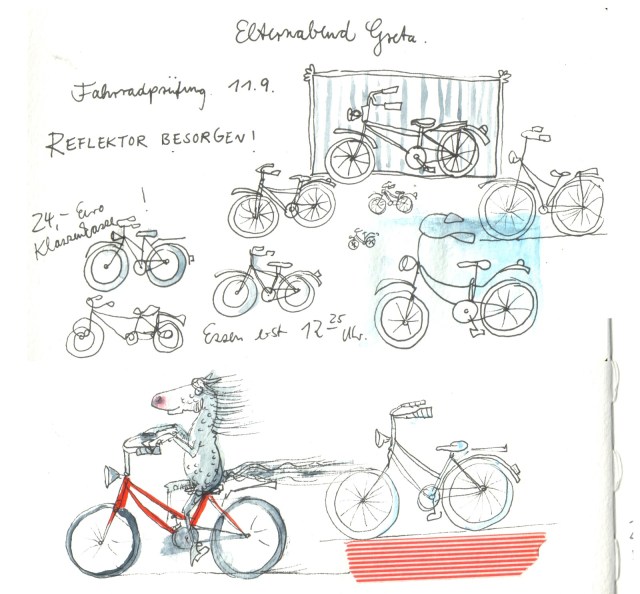 Elternabend Greta.
Fahrradprüfung 11.9.
REFLEKTOR BESORGEN!
24,- Euro !
Klassenkasse
Essen erst 12 25 Uhr.